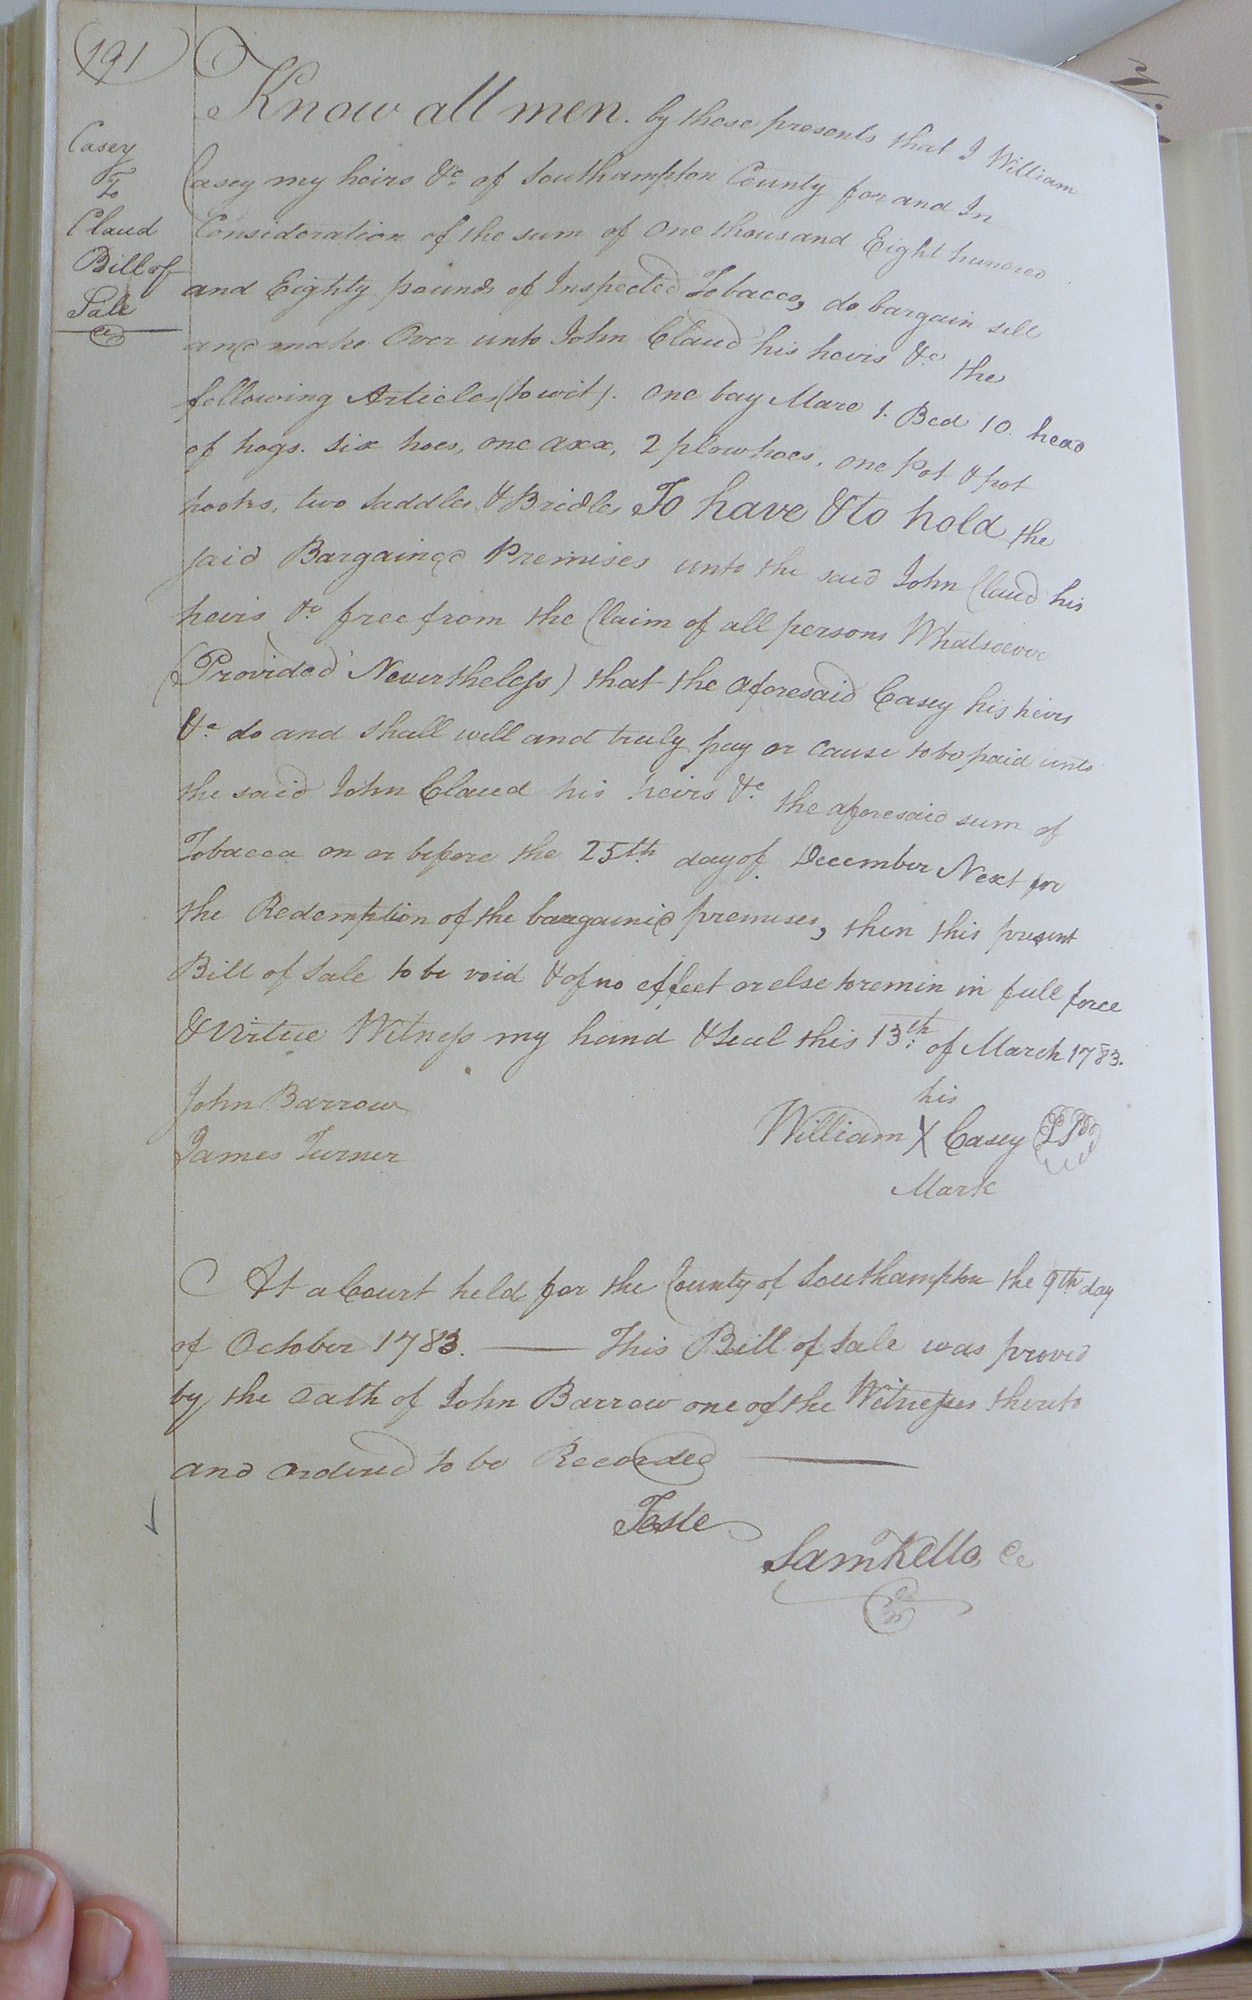 191
Casey
To
Claud
Bill of
Sale
Know all men by these presents that I William
Casey my heirs &c. of Southampton County for and In
Consideration of the sum of One thousand Eight hundred
and Eighty pounds of Inspected Tobacco, do bargain sell
and make Over unto John Claud his heirs &c the
following Articles (to wit). One bay Mare 1. Bed 10. head
of hogs. six hoes, one axx, 2 plow hoes, one Pot & pot
hooks, two saddles, & Bridles To have & to hold the
said Bargained Premises unto the said John Claud his
heirs &c. free from the Claim of all persons Whatsoever
(Provided Nevertheless) that the aforesaid Casey his heirs
&c. do and shall well and truly pay or cause to be paid unto
the said John Claud his heirs &c. the aforesaid sum of
Tobacca on or before the 25th day of December Next for
the Redemption of the bargained premises, then this present
Bill of Sale to be void & of no effect or else to remin in full force
& Virtue Witness my hand & Seal this 13th. of March 1783.
John Barrow
James Turner
his
William X Casey LS
Mark
At a Court held for the County of Southampton the 9th day
of October 1783. This Bill of Sale was proved
by the Oath of John Barrow one of the Witnesses thereto
and ordered to be Recorded
Teste
Sam Kello, Cc